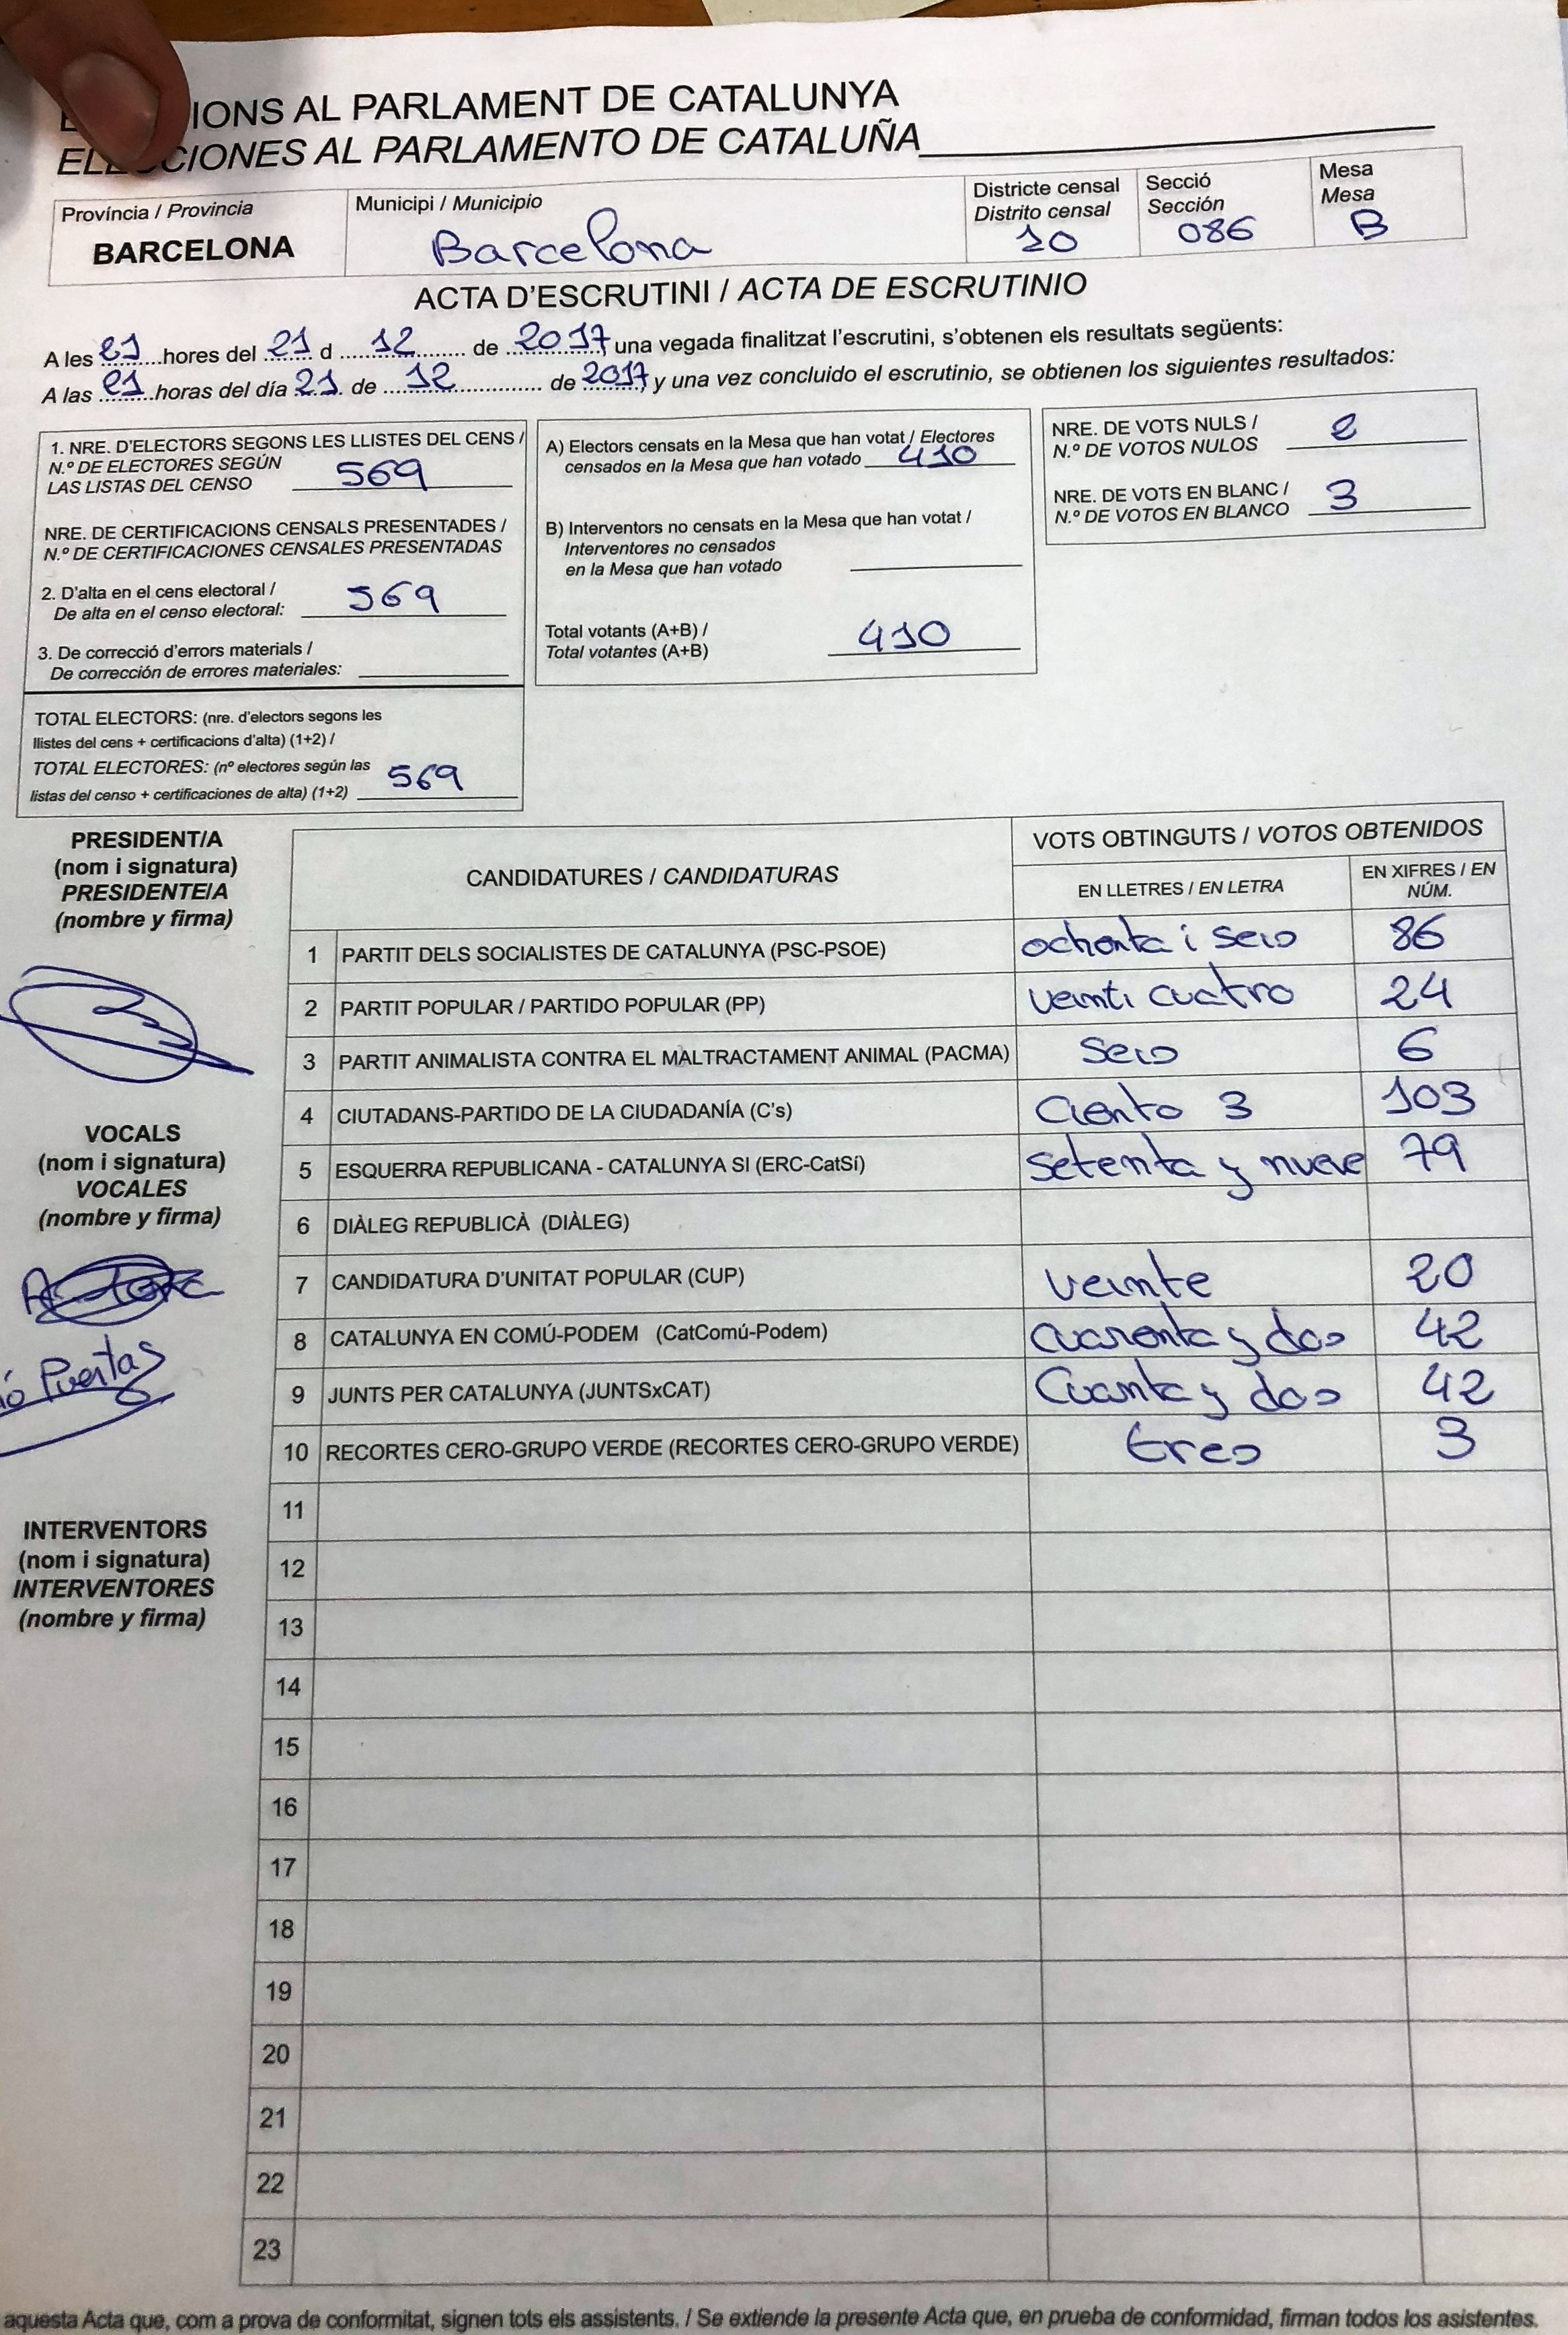 IONS AL PARLAMENT DE CATALUNYA
ELECCIONES AL PARLAMENTO DE CATALUÑA
Província / Provincia
BARCELONA
Municipi / Municipio
Barcelona
Districte censal
Distrito censal
10
Secció
Sección
086
Mesa
Mesa
B
ACTA D'ESCRUTINI / ACTA DE ESCRUTINIO
A les 21 hores del 21 d 12 de 2017, una vegada finalitzat l'escrutini, s'obtenen els resultats següents:
A las 21 horas del día 21 de 12 de 2017 y una vez concluido el escrutinio, se obtienen los siguientes resultados:
1. NRE. D'ELECTORS SEGONS LES LLISTES DEL CENS /
N.º DE ELECTORES SEGÚN
LAS LISTAS DEL CENSO 569
NRE. DE CERTIFICACIONS CENSALS PRESENTADES /
N.º DE CERTIFICACIONES CENSALES PRESENTADAS
2. D'alta en el cens electoral /
De alta en el censo electoral: 569
3. De correcció d'errors materials /
De corrección de errores materiales:
TOTAL ELECTORS: (nre. d'electors segons les
llistes del cens + certificacions d'alta) (1+2) /
TOTAL ELECTORES: (nº electores según las
listas del censo + certificaciones de alta) (1+2) 569
A) Electors censats en la Mesa que han votat / Electores
censados en la Mesa que han votado 410
B) Interventors no censats en la Mesa que han votat /
Interventores no censados
en la Mesa que han votado
Total votants (A+B) /
Total votantes (A+B) 410
NRE. DE VOTS NULS /
N.º DE VOTOS NULOS 2
NRE. DE VOTS EN BLANC /
N.º DE VOTOS EN BLANCO 3
PRESIDENT/A
(nom i signatura)
PRESIDENTE/A
(nombre y firma)
VOCALS
(nom i signatura)
VOCALES
(nombre y firma)
Puertas
INTERVENTORS
(nom i signatura)
INTERVENTORES
(nombre y firma)
CANDIDATURES / CANDIDATURAS
VOTS OBTINGUTS / VOTOS OBTENIDOS
EN LLETRES / EN LETRA
EN XIFRES / EN
NÚM.
1 PARTIT DELS SOCIALISTES DE CATALUNYA (PSC-PSOE) ochenta i seis 86
2 PARTIT POPULAR / PARTIDO POPULAR (PP) veinti cuatro 24
3 PARTIT ANIMALISTA CONTRA EL MALTRACTAMENT ANIMAL (PACMA) Seis 6
4 CIUTADANS-PARTIDO DE LA CIUDADANÍA (C's) Ciento 3 103
5 ESQUERRA REPUBLICANA - CATALUNYA SI (ERC-CatSí) Setenta y nueve 79
6 DIÀLEG REPUBLICÀ (DIÀLEG)
7 CANDIDATURA D'UNITAT POPULAR (CUP) Veinte 20
8 CATALUNYA EN COMÚ-PODEM (CatComú-Podem) Cuarenta y dos 42
9 JUNTS PER CATALUNYA (JUNTSxCAT) Cuarenta y dos 42
10 RECORTES CERO-GRUPO VERDE (RECORTES CERO-GRUPO VERDE) tres 3
11
12
13
14
15
16
17
18
19
20
21
22
23
aquesta Acta que, com a prova de conformitat, signen tots els assistents. / Se extiende la presente Acta que, en prueba de conformidad, firman todos los asistentes.